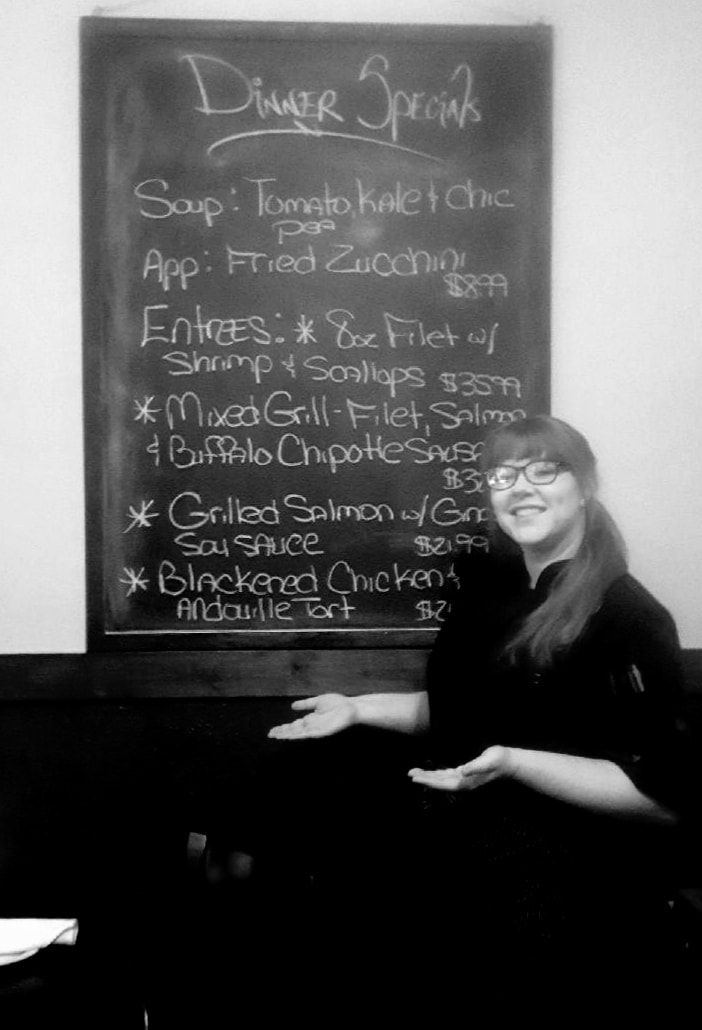 Dinner Specials
Soup: Tomato, Kale & Chic
pea
App: Fried Zucchini
$8.99
Entrees: * 8oz Filet w/
Shrimp & Scallops $35.99
* Mixed Grill - Filet, Salmon
& Buffalo Chipotle
* Grilled Salmon w/
Soy Sauce $21.99
* Blackened Chicken &
Andouille Tort